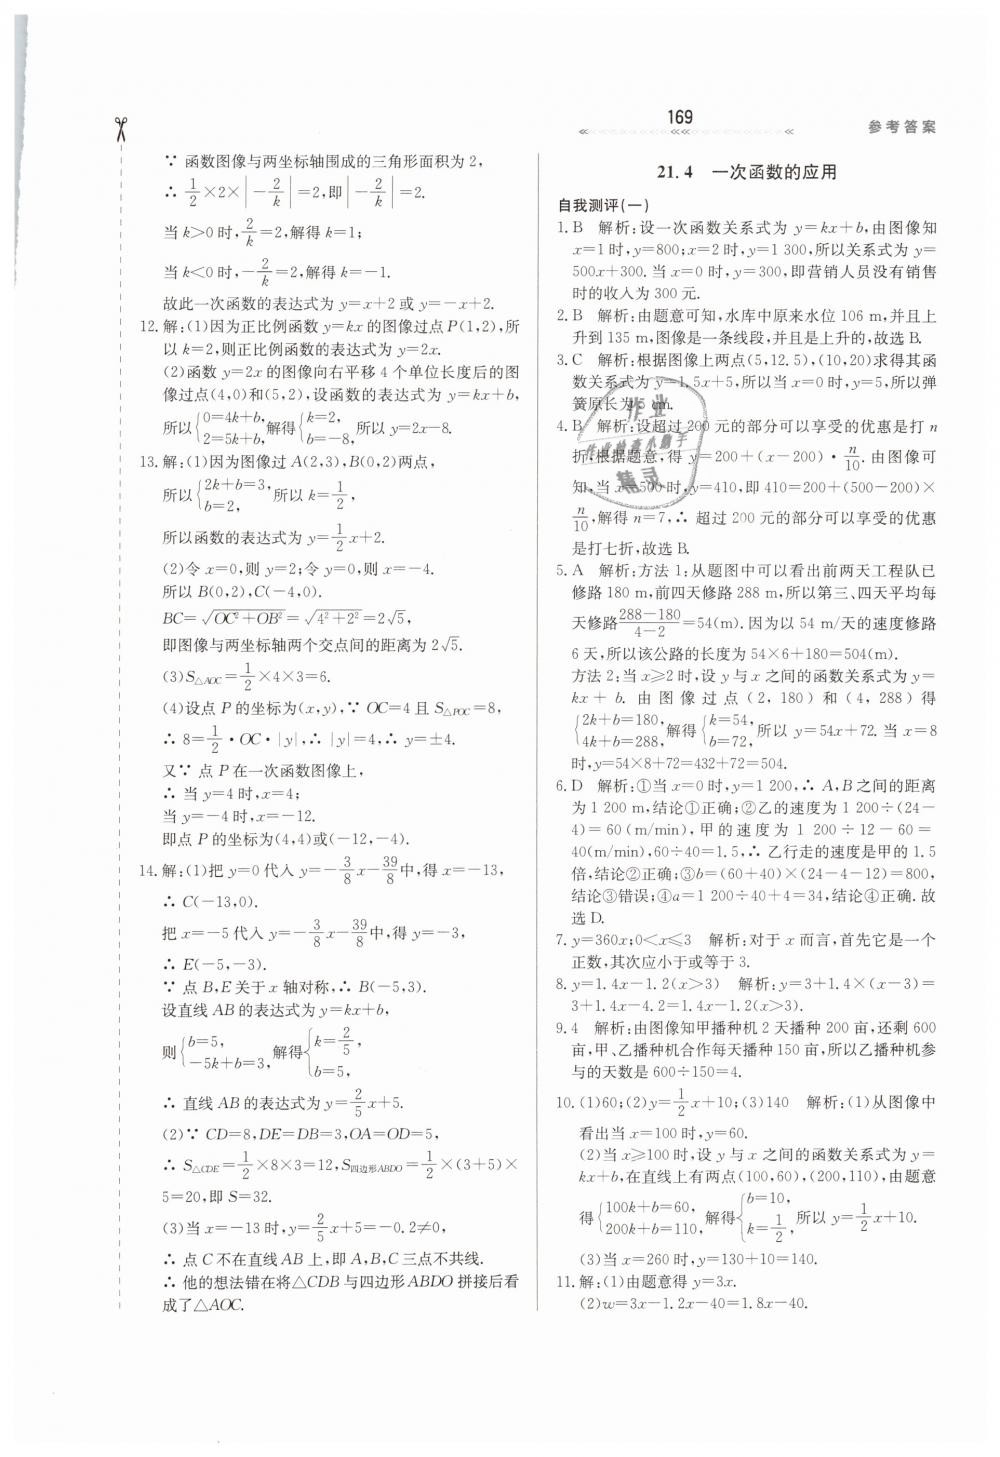 169
参考答案
∵ 函数图像与两坐标轴围成的三角形面积为 2,
∴ 1/2×2×|−2/k|=2,即|−2/k|=2.
当 k>0 时,2/k=2,解得 k=1;
当 k<0 时,−2/k=2,解得 k=−1.
故此一次函数的表达式为 y=x+2 或 y=−x+2.
12. 解:(1)因为正比例函数 y=kx 的图像过点 P(1,2),所
以 k=2,则正比例函数的表达式为 y=2x.
(2)函数 y=2x 的图像向右平移 4 个单位长度后的图
像过点(4,0)和(5,2),设函数的表达式为 y=kx+b,
所以{0=4k+b, 2=5k+b,解得{k=2, b=−8,所以 y=2x−8.
13. 解:(1)因为图像过 A(2,3),B(0,2)两点,
所以{2k+b=3, b=2,所以 k=1/2,
所以函数的表达式为 y=1/2x+2.
(2)令 x=0,则 y=2;令 y=0,则 x=−4.
所以 B(0,2),C(−4,0).
BC=√(OC²+OB²)=√(4²+2²)=2√5,
即图像与两坐标轴两个交点间的距离为 2√5.
(3)S△AOC=1/2×4×3=6.
(4)设点 P 的坐标为(x,y),∵ OC=4 且 S△POC=8,
∴ 8=1/2·OC·|y|,∴ |y|=4,∴ y=±4.
又∵ 点 P 在一次函数图像上,
∴ 当 y=4 时,x=4;
当 y=−4 时,x=−12.
即点 P 的坐标为(4,4)或(−12,−4).
14. 解:(1)把 y=0 代入 y=−3/8x−39/8中,得 x=−13,
∴ C(−13,0).
把 x=−5 代入 y=−3/8x−39/8中,得 y=−3,
∴ E(−5,−3).
∵ 点 B,E 关于 x 轴对称,∴ B(−5,3).
设直线 AB 的表达式为 y=kx+b,
则{b=5, −5k+b=3,解得{k=2/5, b=5,
∴ 直线 AB 的表达式为 y=2/5x+5.
(2)∵ CD=8,DE=DB=3,OA=OD=5,
∴ S△CDE=1/2×8×3=12,S四边形ABDO=1/2×(3+5)×
5=20,即 S=32.
(3)当 x=−13 时,y=2/5x+5=−0.2≠0,
∴ 点 C 不在直线 AB 上,即 A,B,C 三点不共线.
∴ 他的想法错在将△CDB 与四边形 ABDO 拼接后看
成了△AOC.
21.4 一次函数的应用
自我测评(一)
1. B 解析:设一次函数关系式为 y=kx+b,由图像知
x=1 时,y=800;x=2 时,y=1 300,所以关系式为 y=
500x+300. 当 x=0 时,y=300,即营销人员没有销售
时的收入为 300 元.
2. B 解析:由题意可知,水库中原来水位 106 m,并且上
升到 135 m,图像是一条线段,并且是上升的,故选 B.
3. C 解析:根据图像上两点(5,12.5),(10,20)求得其函
数关系式为 y=1.5x+5,所以当 x=0 时,y=5,所以弹
簧原长为 5 cm.
4. B 解析:设超过 200 元的部分可以享受的优惠是打 n
折,根据题意,得 y=200+(x−200)·n/10. 由图像可
知,当 x=500 时,y=410,即 410=200+(500−200)×
n/10,解得 n=7,∴ 超过 200 元的部分可以享受的优惠
是打七折,故选 B.
5. A 解析:方法 1:从题图中可以看出前两天工程队已
修路 180 m,前四天修路 288 m,所以第三、四天平均每
天修路(288−180)/(4−2)=54(m). 因为以 54 m/天的速度修路
6 天,所以该公路的长度为 54×6+180=504(m).
方法 2:当 x≥2 时,设 y 与 x 之间的函数关系式为 y=
kx+b. 由图像过点(2,180)和(4,288)得
{2k+b=180, 4k+b=288,解得{k=54, b=72,所以 y=54x+72. 当 x=8
时,y=54×8+72=432+72=504.
6. D 解析:①当 x=0 时,y=1 200,∴ A,B 之间的距离
为 1 200 m,结论①正确;②乙的速度为 1 200÷(24−
4)=60(m/min),甲的速度为 1 200÷12−60=
40(m/min),60÷40=1.5,∴ 乙行走的速度是甲的 1.5
倍,结论②正确;③b=(60+40)×(24−4−12)=800,
结论③错误;④a=1 200÷40+4=34,结论④正确. 故
选 D.
7. y=360x;0<x≤3 解析:对于 x 而言,首先它是一个
正数,其次应小于或等于 3.
8. y=1.4x−1.2(x>3) 解析:y=3+1.4×(x−3)=
3+1.4x−4.2=1.4x−1.2(x>3).
9. 4 解析:由图像知甲播种机 2 天播种 200 亩,还剩 600
亩,甲、乙播种机合作每天播种 150 亩,所以乙播种机参
与的天数是 600÷150=4.
10. (1)60;(2)y=1/2x+10;(3)140 解析:(1)从图像中
看出当 x=100 时,y=60.
(2)当 x≥100 时,设 y 与 x 之间的函数关系式为 y=
kx+b,在直线上有两点(100,60),(200,110),由题意
得{100k+b=60, 200k+b=110,解得{b=10, k=1/2,所以 y=1/2x+10.
(3)当 x=260 时,y=130+10=140.
11. 解:(1)由题意得 y=3x.
(2)w=3x−1.2x−40=1.8x−40.
作业
作业检查小助手
精灵